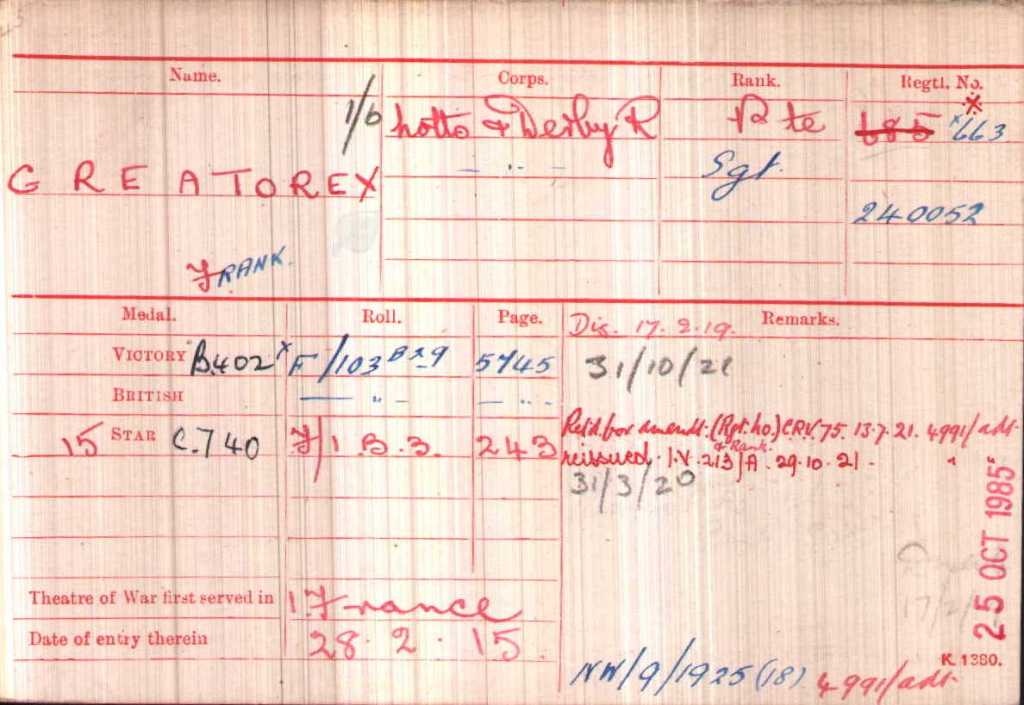 Name. Corps. Rank. Regtl. No.
1/6 Notts & Derby R Pte 685 x 663
x
GREATOREX - " - Sgt.
240052
FRANK.
Medal. Roll. Page. Remarks.
Dis. 17.2.19.
VICTORY B402 x F/103 B 5745
31/10/21
BRITISH — " — — " —
15 STAR C.740 F/1.B.3. 243
Retd. for amendt. (Rgt. No) CRV 75. 13.7.21. 4991/adt.
& Rank.
reissued. I.V. 213/A. 29.10.21. "
31/3/20
25 OCT 1985
Theatre of War first served in 1. France
Date of entry therein 28.2.15.
K. 1380.
NW/9/1925(18) 4991/adt.